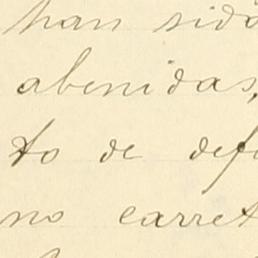 han sido
abenidas,
to de def
no carret